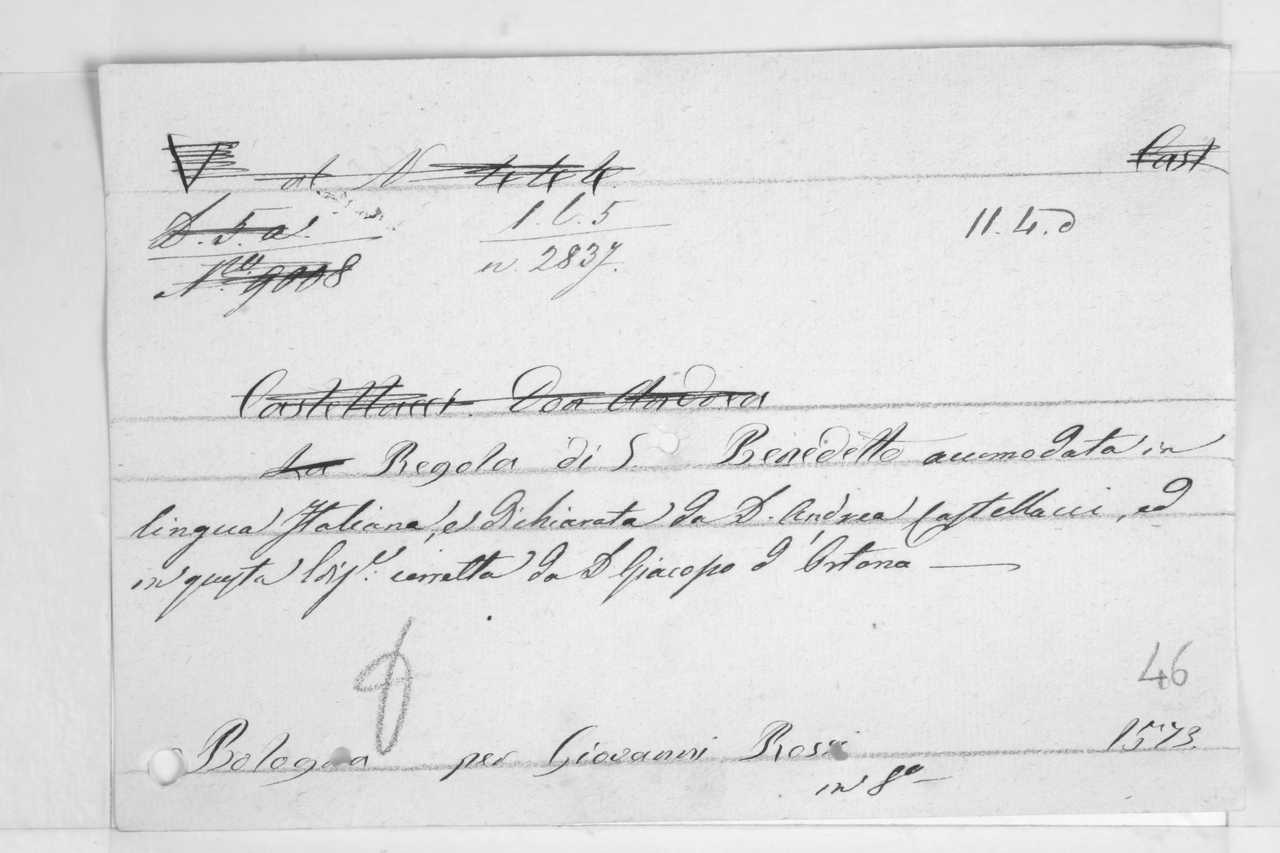 V at N 444 Cast
D. 5. a. 1. C. 5 11. 4. d
N.ro 9008 n. 2837.
Castellacci Don Andrea
La Regola di S. Benedetto accomodata in
lingua Italiana, e dichiarata da D. Andrea Castellacci, ed
in questa corretta da D Giacopo d'Ortona
46
Bologna per Giovanni Rossi 1573.
in 8o